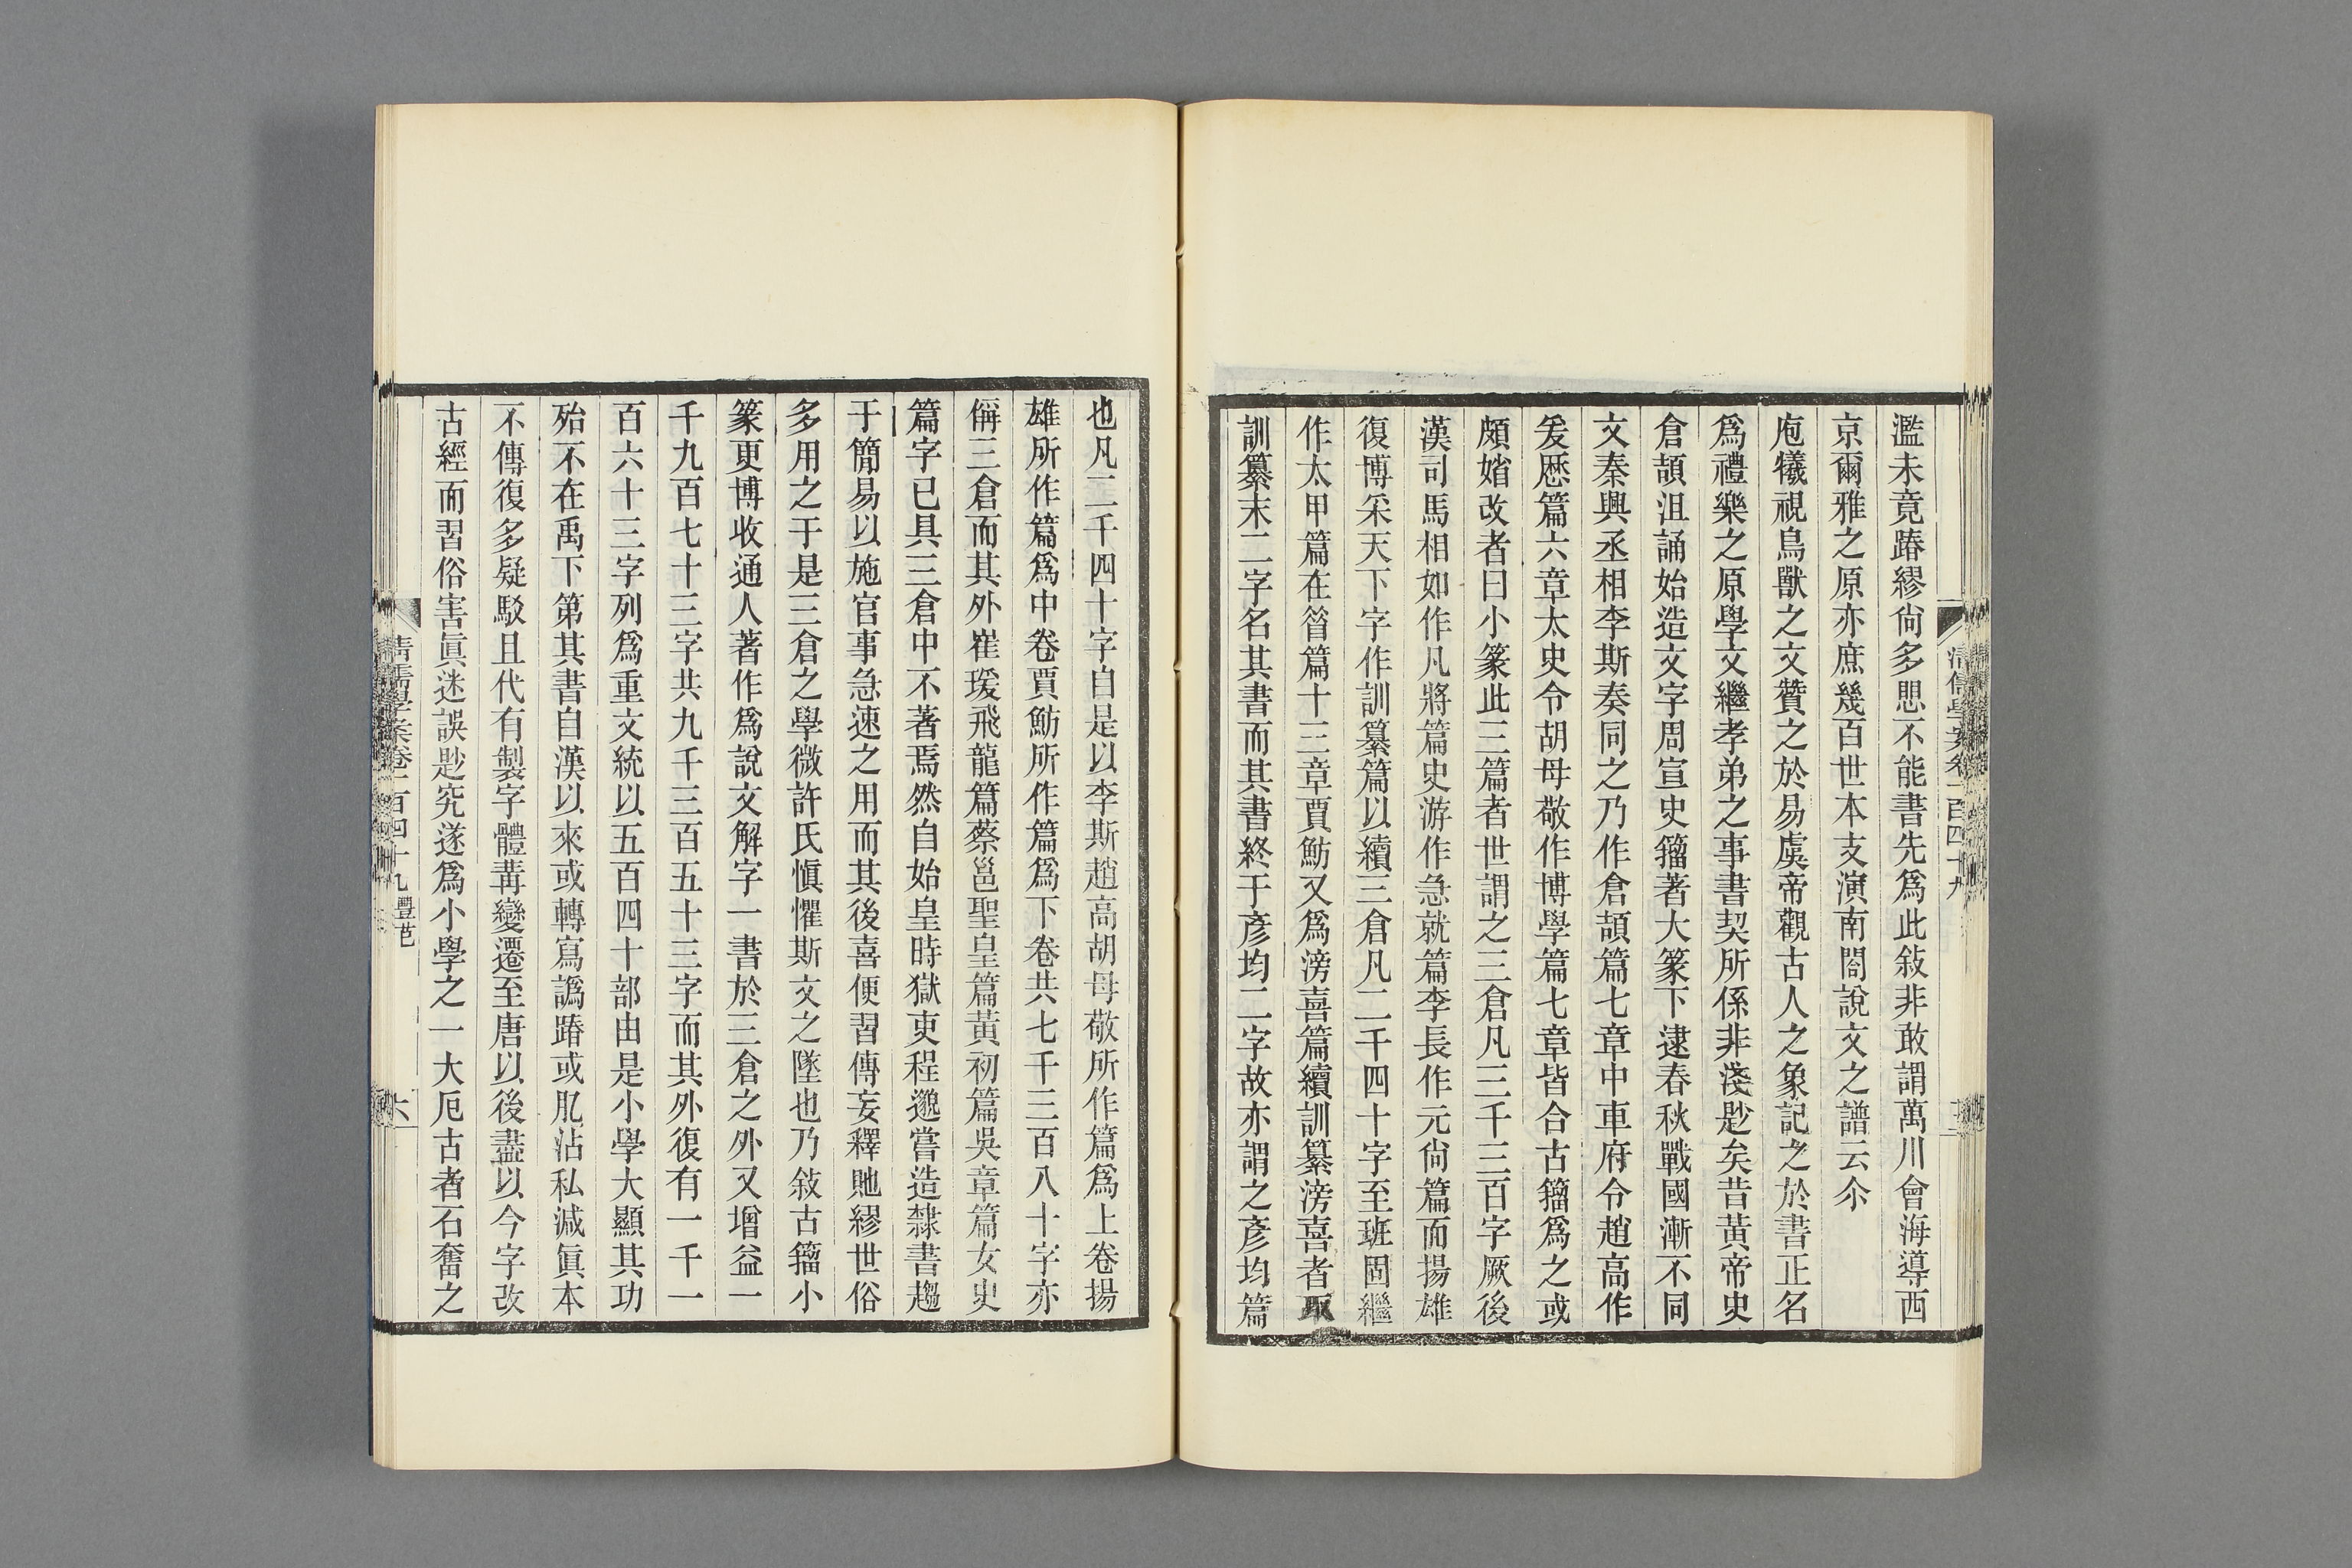 濫未竟踳繆尙多思不能書先爲此敍非敢謂萬川會海導西
京爾雅之原亦庶幾百世本支演南閣說文之譜云尒
庖犧視鳥獸之文贊之於易虞帝觀古人之象記之於書正名
爲禮樂之原學文繼孝弟之事書契所係非淺尟矣昔黃帝史
倉頡沮誦始造文字周宣史籀著大篆下逮春秋戰國漸不同
文秦興丞相李斯奏同之乃作倉頡篇七章中車府令趙高作
爰歷篇六章太史令胡母敬作博學篇七章皆合古籀爲之或
頗媘改者曰小篆此三篇者世謂之三倉凡三千三百字厥後
漢司馬相如作凡將篇史游作急就篇李長作元尙篇而揚雄
復博采天下字作訓纂篇以續三倉凡二千四十字至班固繼
作太甲篇在篇十三章賈魴又爲滂喜篇續訓纂滂喜者取
訓纂末二字名其書而其書終于彥均二字故亦謂之彥均篇
也凡二千四十字自是以李斯趙高胡母敬所作篇爲上卷揚
雄所作篇爲中卷賈魴所作篇爲下卷共七千三百八十字亦
偁三倉而其外崔瑗飛龍篇蔡邕聖皇篇黃初篇吳章篇女史
篇字已具三倉中不著焉然自始皇時獄吏程邈嘗造隸書趨
于簡易以施官事急速之用而其後喜便習傳妄釋貤繆世俗
多用之于是三倉之學微許氏愼懼斯文之墜也乃敍古籀小
篆更博收通人著作爲說文解字一書於三倉之外又增益一
千九百七十三字共九千三百五十三字而其外復有一千一
百六十三字列爲重文統以五百四十部由是小學大顯其功
殆不在禹下第其書自漢以來或轉寫譌踳或肊沾私減眞本
不傳復多疑駁且代有製字體冓變遷至唐以後盡以今字改
古經而習俗害眞迷誤尟究遂爲小學之一大厄古者石奮之
清儒學案卷二百四十九 豐芑
六